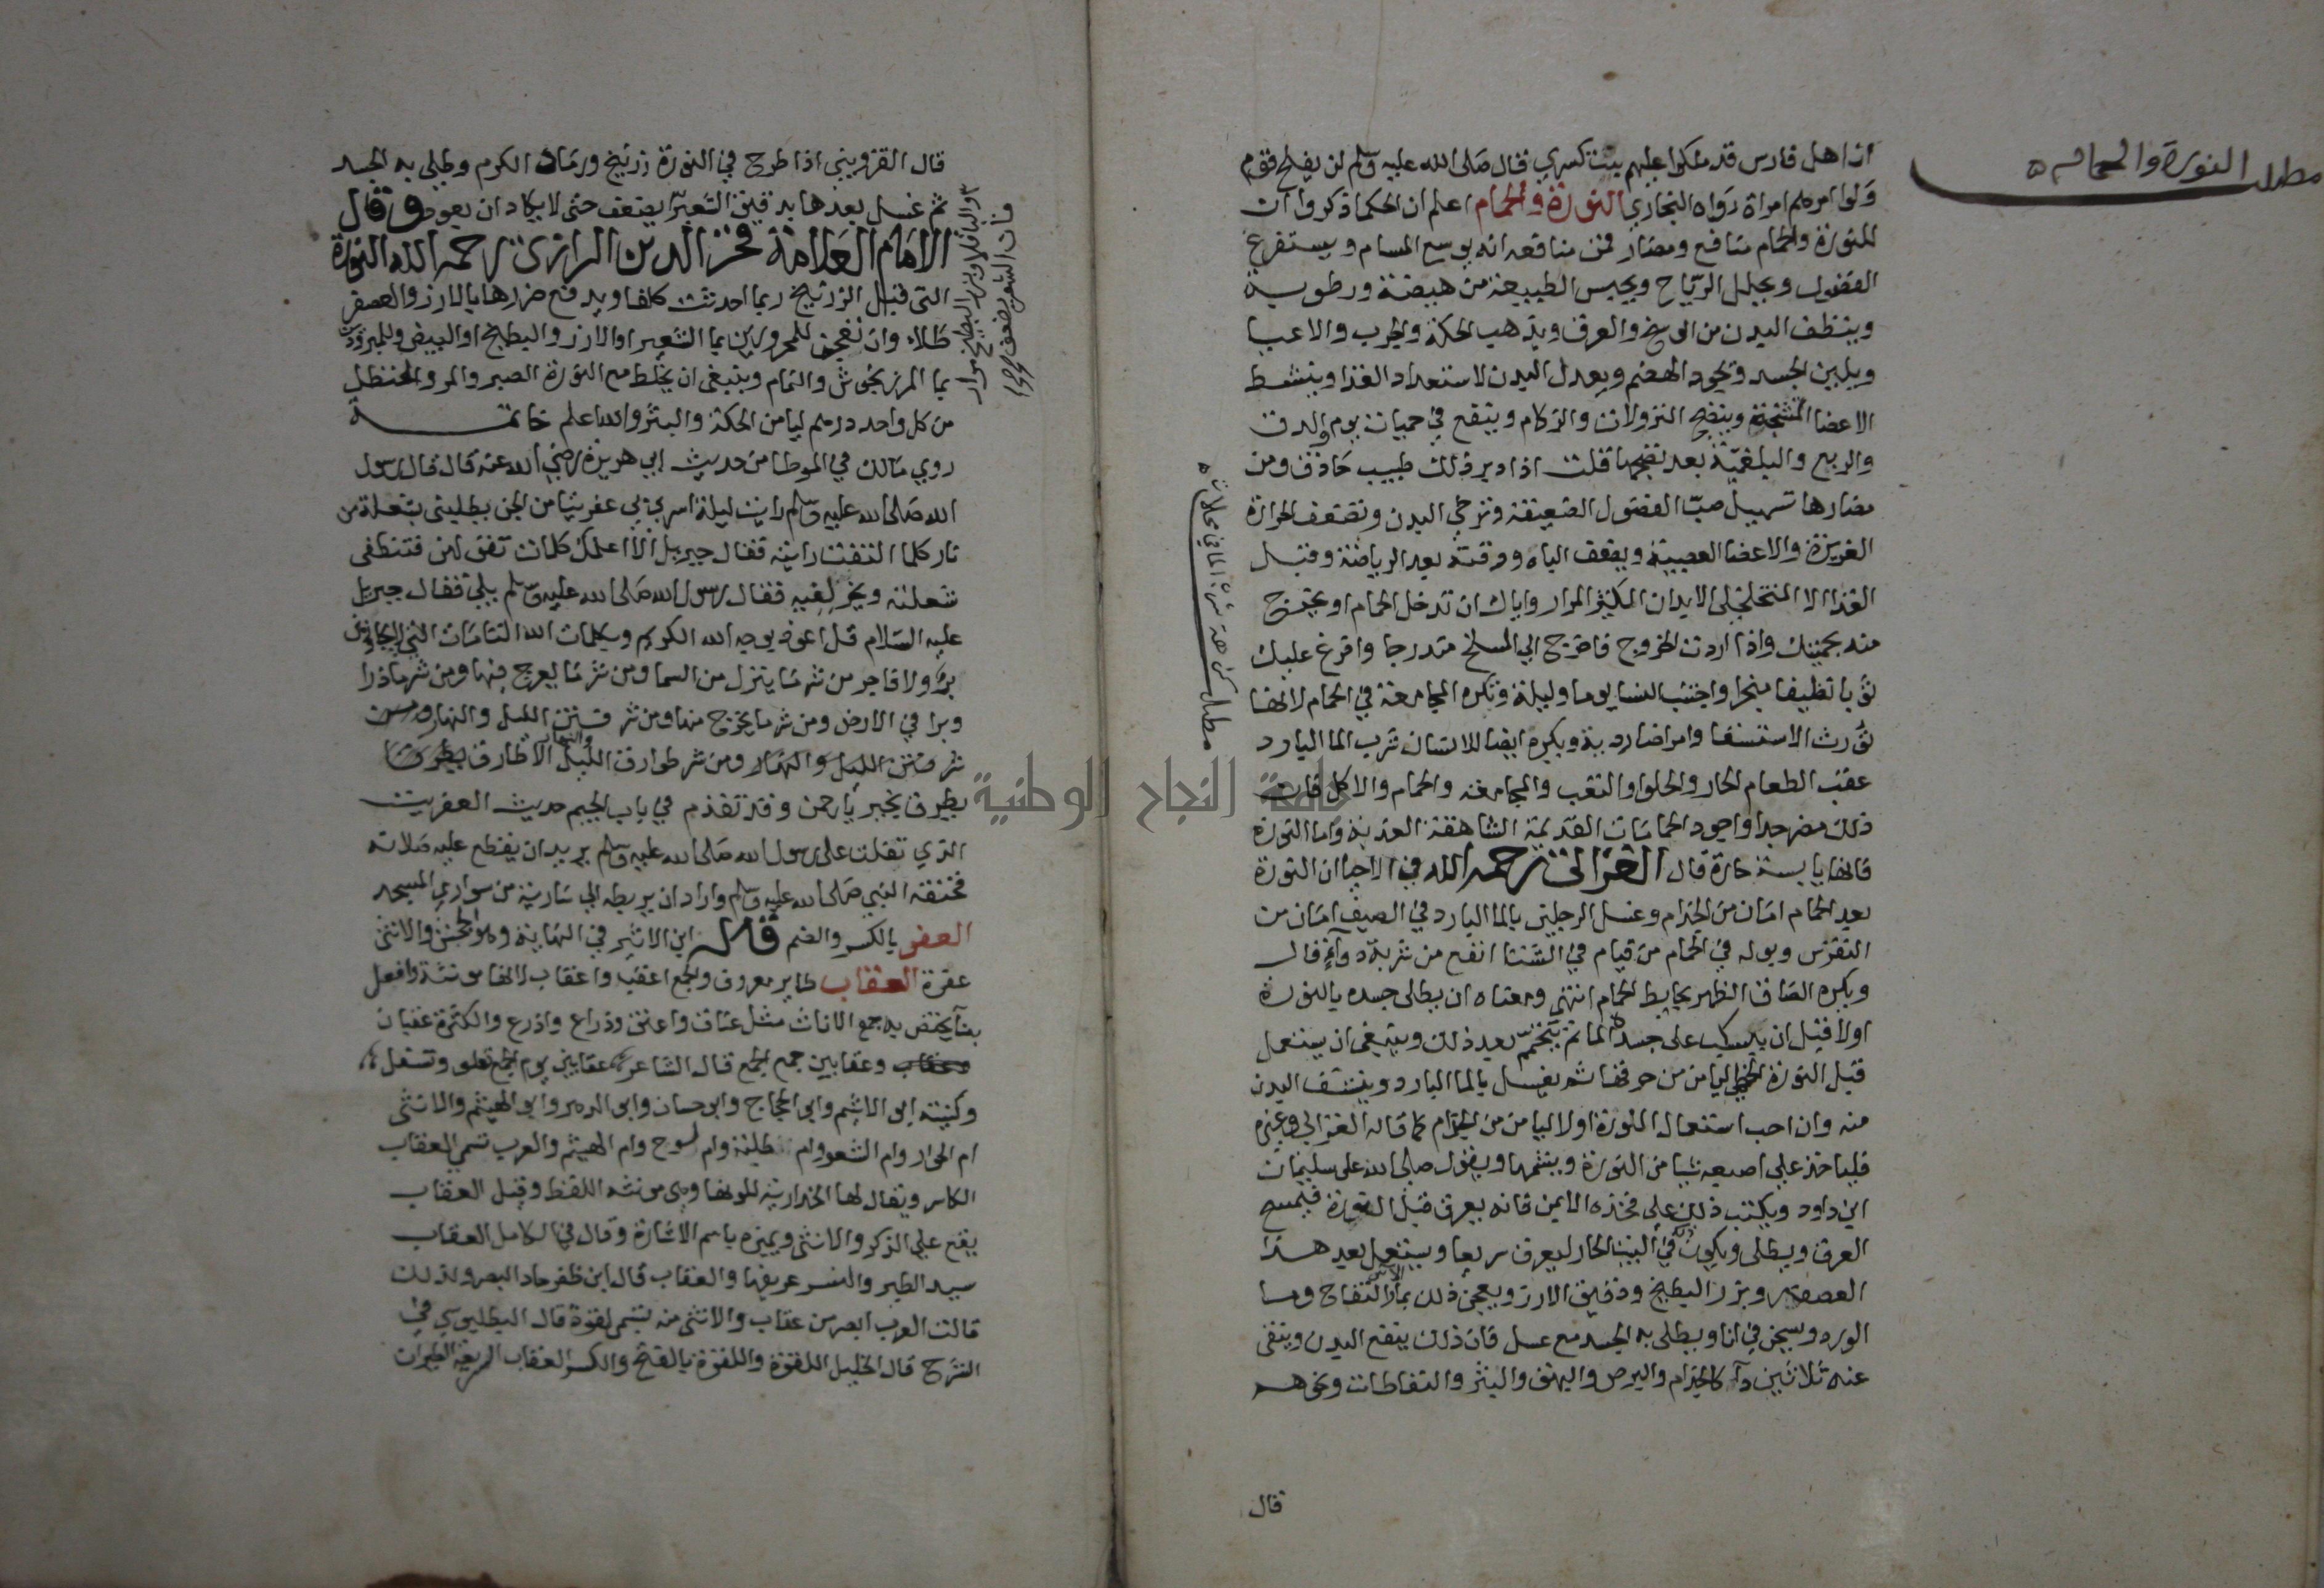 مطلب النورة والحمام
ان اهل فارس قد ملكوا عليهم بنت كسري قال صلى الله عليه وسلم لن يفلح قوم
ولوا امرهم امراة رواه البخاري النورة والحمام اعلم ان الحكما ذكروا ان
للنورة والحمام منافع ومضار فمن منافعه انه يوسع المسام ويستفرغ
الفضول ويحلل الرياح ويحبس الطبيعة من هيضة ورطوبة
وينظف البدن من الوسخ والعرق ويذهب الحكة والجرب والاعيا
ويلين الجسد ويجود الهضم ويعدل البدن لاستعداد الغذا وينشط
الاعضا المتشنجة وينضج النزولات والزكام وينفع في حميات يوم والدق
والربع والبلغمية بعد نضجها قلت اذا دبر ذلك طبيب حاذق ومن
مضارها تسهيل صب الفضول الضعيفة وترخي البدن وتضعف الحرارة
الغريزة والاعضا العصبية ويضعف الباه ووقته بعد الرياضة وقبل
الغذا الا المتخلخلي الابدان الكثير المرار واياك ان تدخل الحمام او تخرج
منه بحميتك واذا اردت الخروج فاخرج الي المسلخ متدرجا وافرغ عليك
ثوبا نظيفا مبخرا واجتنب النسا يوما وليلة وتكره المجامعة في الحمام لانها
تورث الاستسقا وامراضا ردية ويكره ايضا للانسان شرب الما البارد
عقب الطعام الحار والحلوا والتعب والمجامعة والحمام والاكل فان
ذلك مضر جدا واجود الحمامات القديمة الشاهقة العذبة واما النورة
فانها يابسة حارة قال الغزالى رحمه الله في الاحيا ان النورة
بعد الحمام امان من الجذام وغسل الرجلين بالما البارد في الصيف امان من
النقرس وبوله في الحمام من قيام في الشتا انفع من شربة دوآء قال
ويكره الصاق الظهر بحايط الحمام انتهي ومعناه ان يطلى جسده بالنورة
اولا قبل ان يسكب على جسده الما ثم يتحمم بعد ذلك وينبغي ان يستعمل
قبل النورة الخطمي ليامن من حرقها ثم يغسل بالما البارد وينشف البدن
منه وان احب استعمال النورة اولا ليامن من الجذام كما قاله الغزالي وغيره
فلياخذ علي اصبعه شيا من النورة ويشمها ويقول صلى الله على سليمان
ابن داود ويكتب ذلك على فخذه الايمن فانه يعرق قبل النورة فيمسح
العرق ويطلى ويكون ذلك في البيت الحار ليعرق سريعا ويستعمل بعد هذا
العصفر وبزر البطيخ ودقيق الارز ويعجن ذلك بماء الاس والتفاح وما
الورد ويسخن في انا ويطلى به الجسد مع عسل فان ذلك ينفع البدن وينفى
عنه ثلاثين دآ كالجذام والبرص والبهق والبثر والنفاطات ونحوه
قال
مطلب كراهة شرب الما في حالات
قال القزويني اذا طرح في النورة زرنيخ ورماد الكرم وطلي به الجسد
ثم غسل بعدها بدقيق الشعير والباقلا وبزر البطيخ مرار فان الشعر يضعف حتى لا يكاد ان يعود وقال
الامام العلامة فخر الدين الرازى رحمه الله النورة
التى قبل الزرنيخ ربما احدثت كلفا ويدفع ضررها بالارز والعصفر
طلاء وان تعجن للمحرورين بما الشعير او الارز والبطيخ او البيض وللمبرودين
بما المرزنجوش والنمام وينبغى ان يخلط مع النورة الصبر والمر والحنظل
من كل واحد درهم ليامن الحكة والبثر والله اعلم خاتمة
روي مالك في الموطا من حديث ابي هريرة رضي الله عنه قال قال رسول
الله صلى الله عليه وسلم رايت ليلة اسري بي عفريتا من الجن يطلبني بشعلة من
نار كلما التفت رايته فقال جبريل الا اعلمك كلمات تقولهن فتنطفى
شعلته ويخر لفيه فقال رسول الله صلى الله عليه وسلم بلي فقال جبريل
عليه السلام قل اعوذ بوجه الله الكريم وبكلمات الله التامات التي لا يجاوزهن
بر ولا فاجر من شر ما ينزل من السما ومن شر ما يعرج فيها ومن شر ما ذرا
وبرا في الارض ومن شر ما يخرج منها ومن شر فتن الليل والنهار ومن
شر فتن الليل والنهار ومن شر طوارق الليل والنهار الا طارقا يطرق
يطرق بخير يا رحمن وقد تقدم في باب الجيم حديث العفريت
الذي تفلت على رسول الله صلى الله عليه وسلم يريد ان يقطع عليه صلاته
فخنقه النبي صلى الله عليه وسلم واراد ان يربطه الي سارية من سواري المسجد
العفر بالكسر والضم قال ابن الاثير في النهاية وهو الجحش والانثى
عفرة العقاب طاير معروف والجمع اعقب واعقاب لانها مونثة وافعل
بنآ يختص به جمع الاناث مثل عناق واعنق وذراع واذرع والكثرة عقبان
وعقاب وعقابين جمع الجمع قال الشاعر عقابين يوم الجمع تعلو وتسفل
وكنيته ابو الاشيم وابو الحجاج وابو حسان وابو الدهر وابو الهيثم والانثى
ام الحوار وام الشعو وام طلبة وام لوح وام الهيثم والعرب تسمى العقاب
الكاسر ويقال لها الخدارية للونها وهى مونثة اللفظ وقيل العقاب
يقع علي الذكر والانثى ويميزه باسم الاشارة وقال في الكامل العقاب
سيد الطير والنسر عريفها والعقاب قال ابن ظفر حاد البصر ولذلك
قالت العرب ابصر من عقاب والانثى منه تسمى لقوة قال البطليوسي في
الشرح قال الخليل اللقوة واللقوة بالفتح والكسر العقاب السريعة الطيران
جامعة النجاح الوطنية